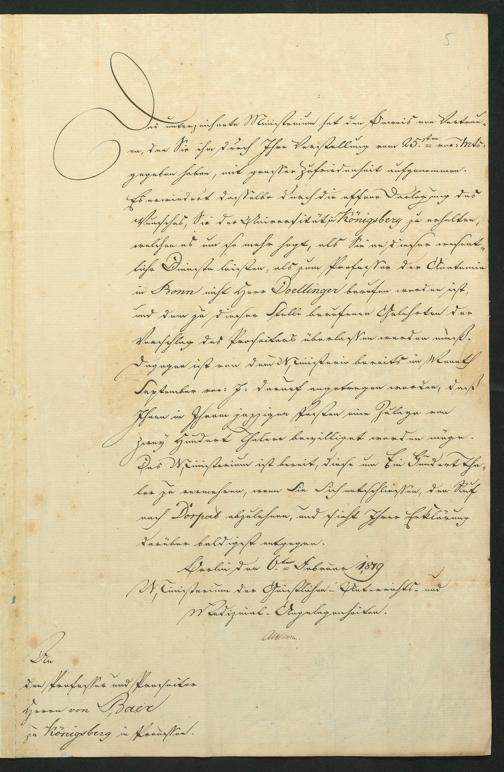 5
Das unterzeichnete Ministerium hat den Beweis von Vertrau-
en, den Sie ihm durch Ihre Vorstellung vom 25.ten v: Mts:
gegeben haben, mit grosser Zufriedenheit aufgenommen.
Es erwiedert dasselbe durch die offene Darlegung des
Wunsches, Sie der Universität zu Königsberg zu erhalten,
welchen es um so mehr hegt, als Sie an dieser wesent-
liche Dienste leisten, als zum Professor der Anatomie
in Bonn nicht Herr Doellinger berufen worden ist,
und dem zu dieser Stelle berufenen Gelehrten der
Vorschlag des Prosectors überlassen werden muß.
Dagegen ist von dem Ministerio bereits im Monath
September vor: J. darauf angetragen worden, daß
Ihnen in Ihrem jetzigen Posten eine Zulage von
zwey Hundert Thalern bewilliget werden möge.
Das Ministerium ist bereit, diese um Ein Hundert Tha-
ler zu vermehren, wenn Sie Sich entschliessen, den Ruf
nach Dorpat abzulehnen, und sieht Ihrer Erklärung
darüber baldigst entgegen.
Berlin den 6.ten Februar 1819
Ministerium der Geistlichen- Unterrichts- und
Medizinal-Angelegenheiten.
An
den Professor und Prosector
Herrn von Baer
zu Königsberg in Preussen.